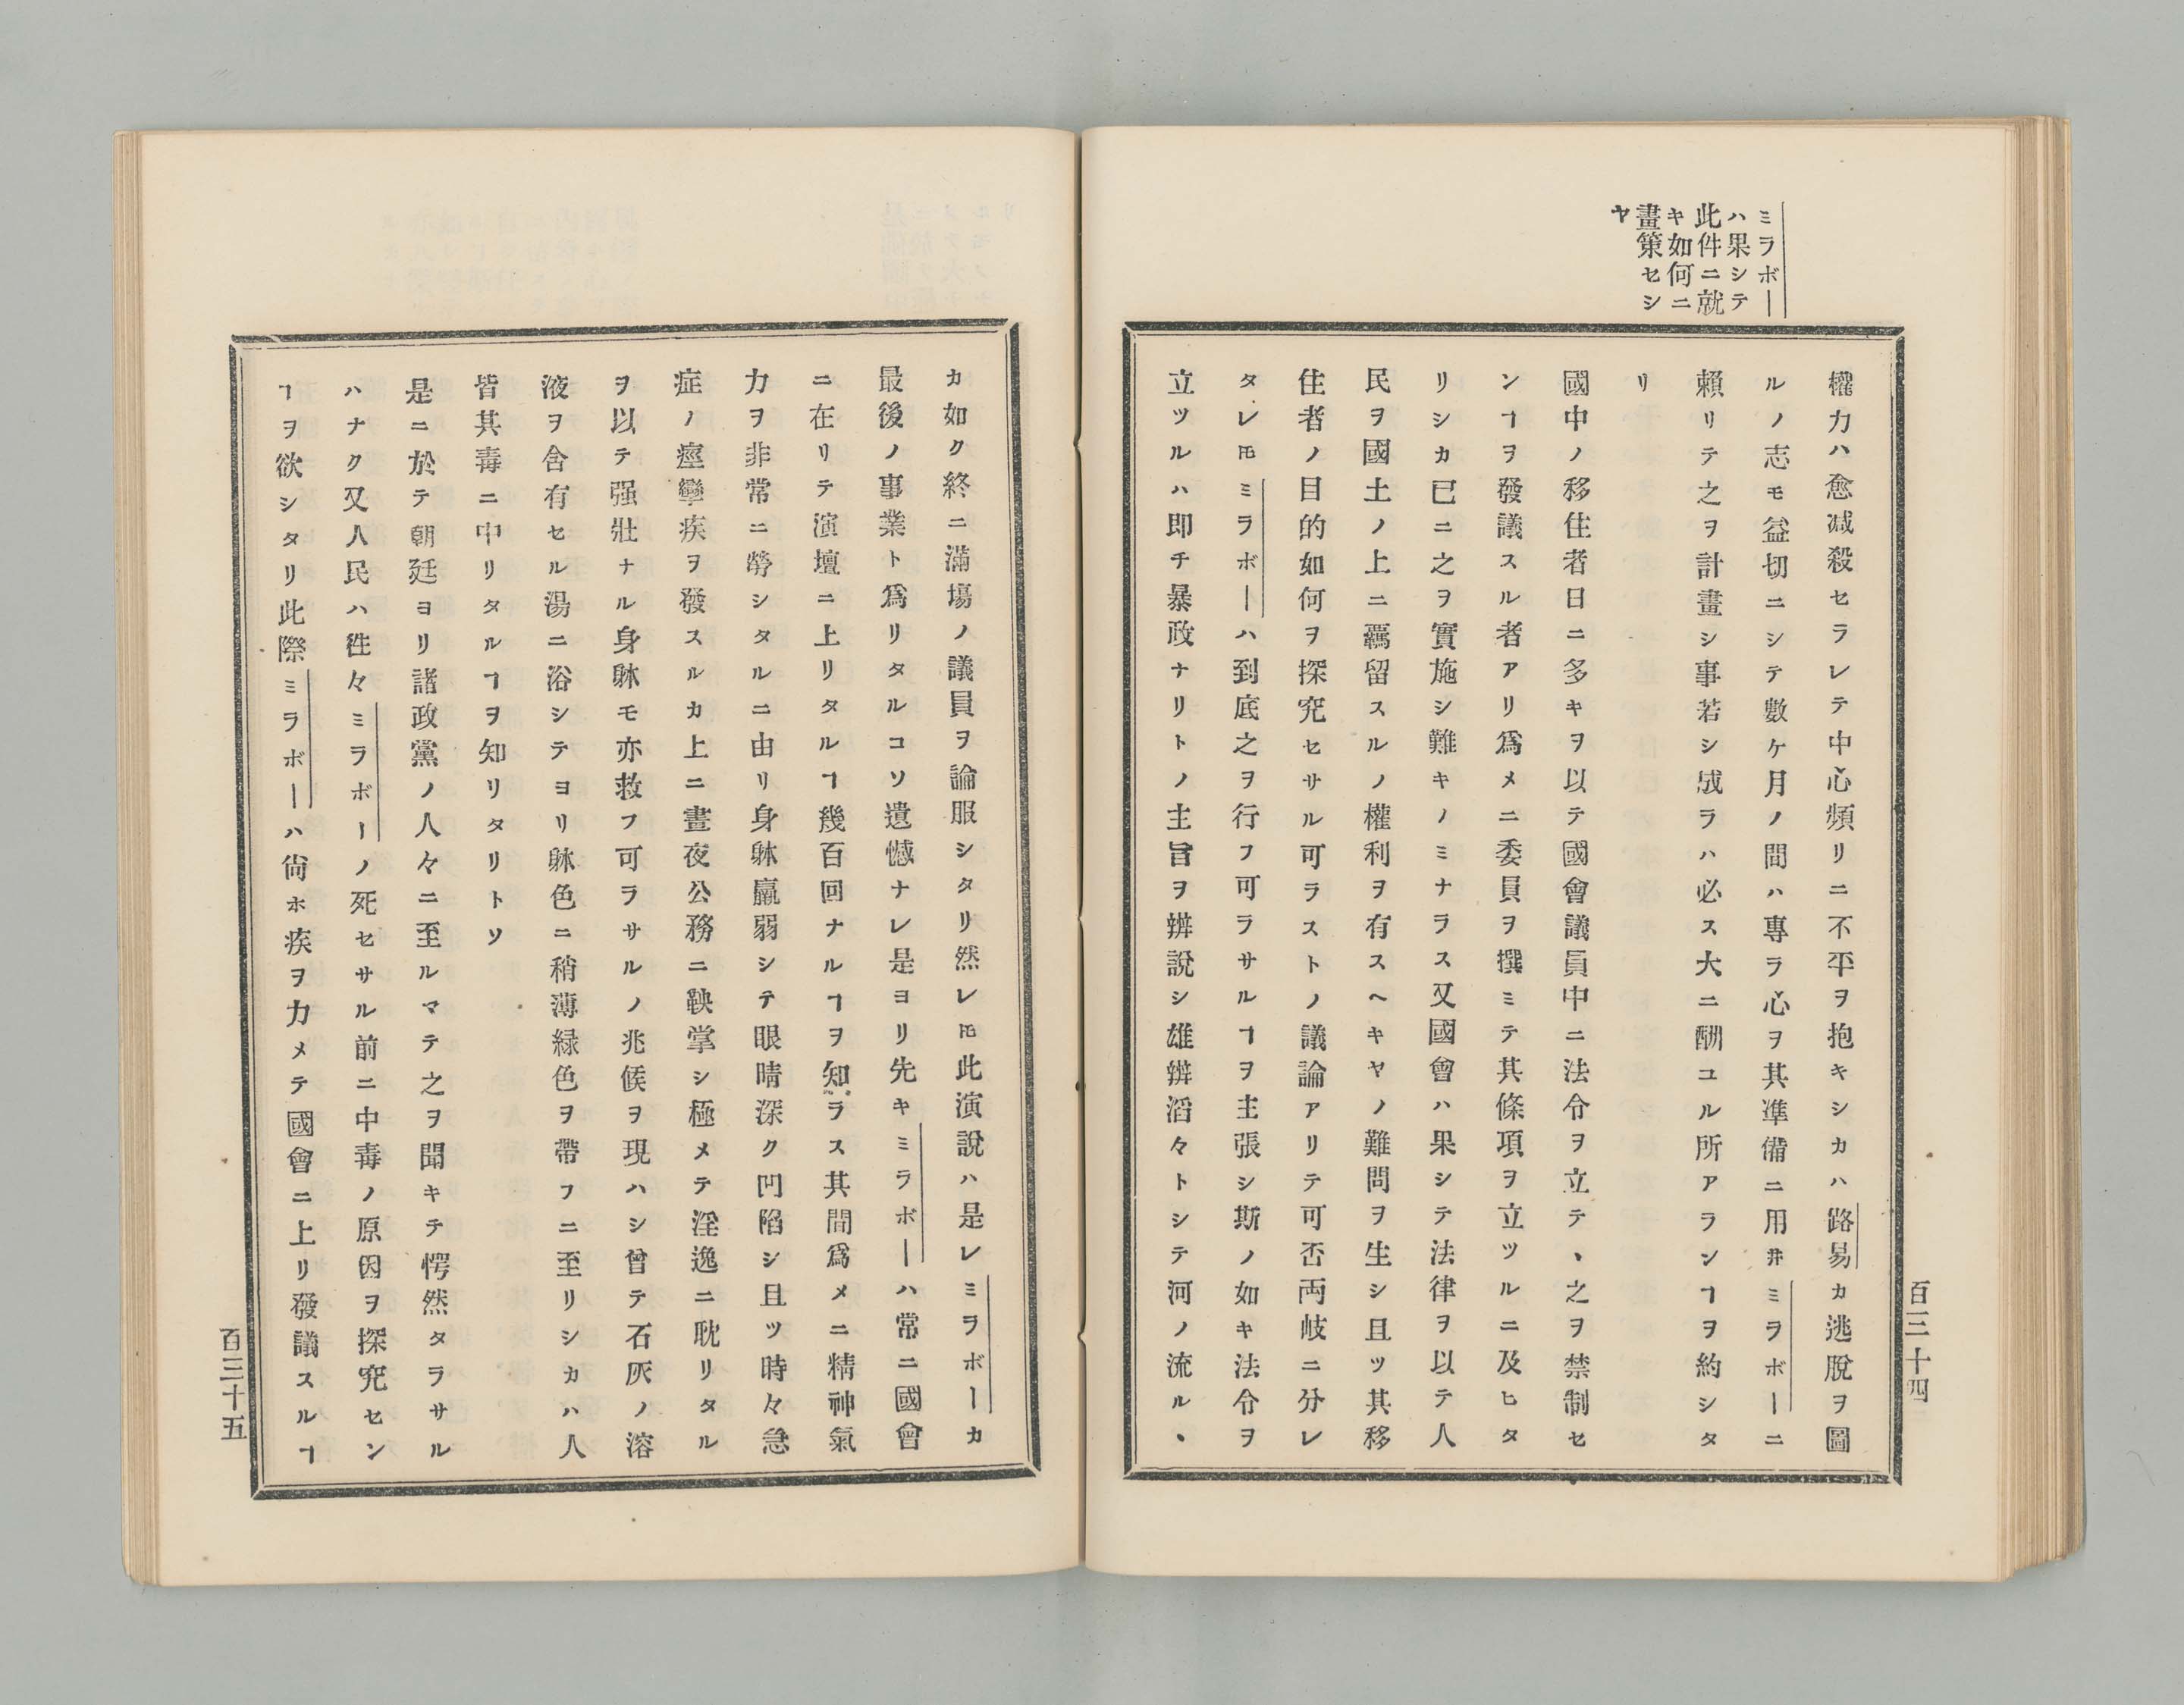 ミラボー
ハ果シテ
此件ニ就
キ如何ニ
畫策セシ
ヤ
權力ハ愈減殺セラレテ中心頻リニ不平ヲ抱キシカハ路易カ逃脫ヲ圖
ルノ志モ益切ニシテ數ケ月ノ間ハ專ラ心ヲ其準備ニ用井ミラボーニ
賴リテ之ヲ計畫シ事若シ成ラハ必ス大ニ酬ユル所アランヿヲ約シタ
リ
國中ノ移住者日ニ多キヲ以テ國會議員中ニ法令ヲ立テヽ之ヲ禁制セ
ンヿヲ發議スル者アリ爲メニ委員ヲ撰ミテ其條項ヲ立ツルニ及ヒタ
リシカ已ニ之ヲ實施シ難キノミナラス又國會ハ果シテ法律ヲ以テ人
民ヲ國土ノ上ニ羈留スルノ權利ヲ有スヘキヤノ難問ヲ生シ且ツ其移
住者ノ目的如何ヲ探究セサル可ラストノ議論アリテ可否両岐ニ分レ
タレ𪜈ミラボーハ到底之ヲ行フ可ラサルヿヲ主張シ斯ノ如キ法令ヲ
立ツルハ即チ暴政ナリトノ主旨ヲ辨說シ雄辨滔々トシテ河ノ流ルヽ
百三十四
カ如ク終ニ滿塲ノ議員ヲ論服シタリ然レ𪜈此演說ハ是レミラボーカ
最後ノ事業ト爲リタルコソ遺憾ナレ是ヨリ先キミラボーハ常ニ國會
ニ在リテ演壇ニ上リタルヿ幾百回ナルヿヲ知ラス其間爲メニ精神氣
力ヲ非常ニ勞シタルニ由リ身躰羸弱シテ眼睛深ク凹陷シ且ツ時々急
症ノ痙攣疾ヲ發スルカ上ニ晝夜公務ニ鞅掌シ極メテ淫逸ニ耽リタル
ヲ以テ强壯ナル身躰モ亦救フ可ラサルノ兆候ヲ現ハシ曾テ石灰ノ溶
液ヲ含有セル湯ニ浴シテヨリ躰色ニ稍薄緑色ヲ帶フニ至リシカハ人
皆其毒ニ中リタルヿヲ知リタリトソ
是ニ於テ朝廷ヨリ諸政黨ノ人々ニ至ルマテ之ヲ聞キテ愕然タラサル
ハナク又人民ハ徃々ミラボーノ死セサル前ニ中毒ノ原因ヲ探究セン
ヿヲ欲シタリ此際ミラボーハ尙ホ疾ヲ力メテ國會ニ上リ發議スルヿ
百三十五